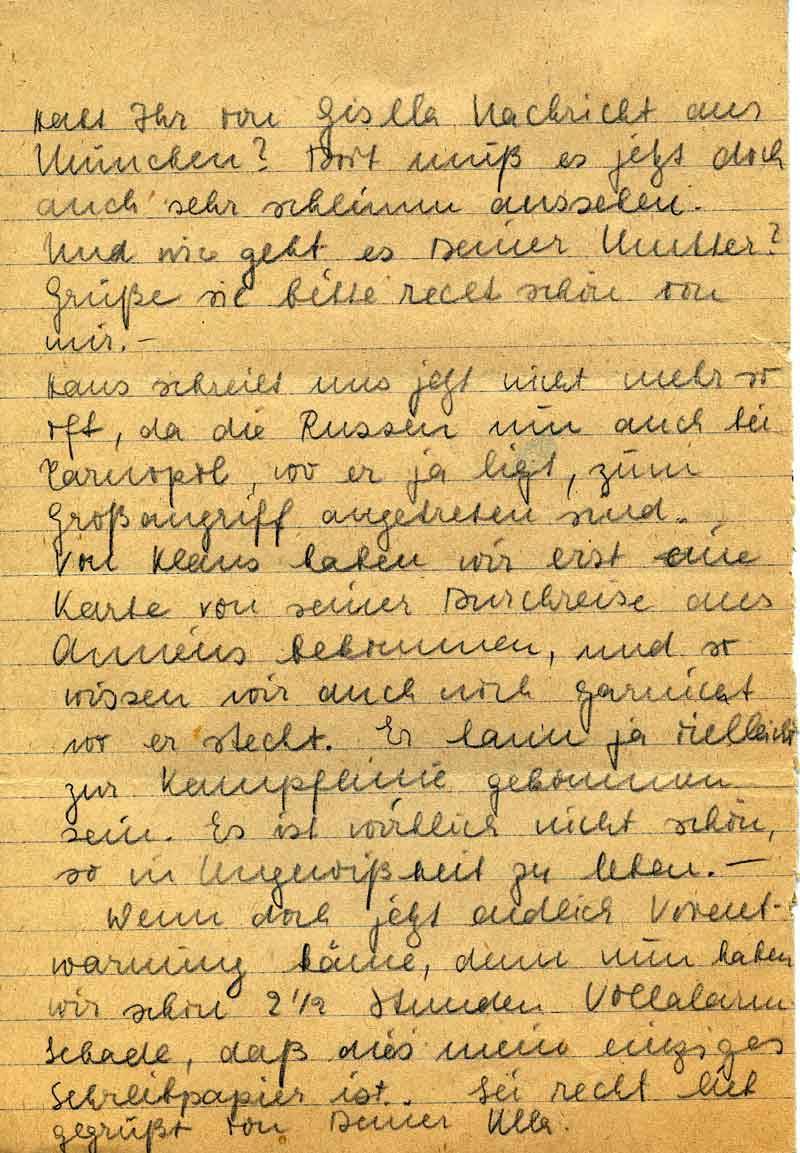 Habt Ihr von Gisela Nachricht aus
München? Dort muß es jetzt doch
auch sehr schlimm aussehen.
Und wie geht es Deiner Mutter?
Grüße sie bitte recht schön von
mir.-
Hans schreibt uns jetzt nicht mehr so
oft, da die Russen nun auch bei
Tarnopol, wo er ja ligt, zum
Großangriff angetreten sind.
Von Klaus haben wir erst eine
Karte von seiner Durchreise aus
Amiens bekommen, und so
wissen wir auch noch garnicht
wo er steckt. Er kann ja vielleicht
zur Kampflinie gekommen
sein. Es ist wirklich nicht schön,
so in Ungewißheit zu leben.-
Wenn doch jetzt endlich Vorent-
warnung käme, denn nun haben
wir schon 2 1/2 Stunden Vollalarm
Schade, daß dies mein einziges
Schreibpapier ist. Sei recht lieb
gegrüßt von Deiner Ulla.